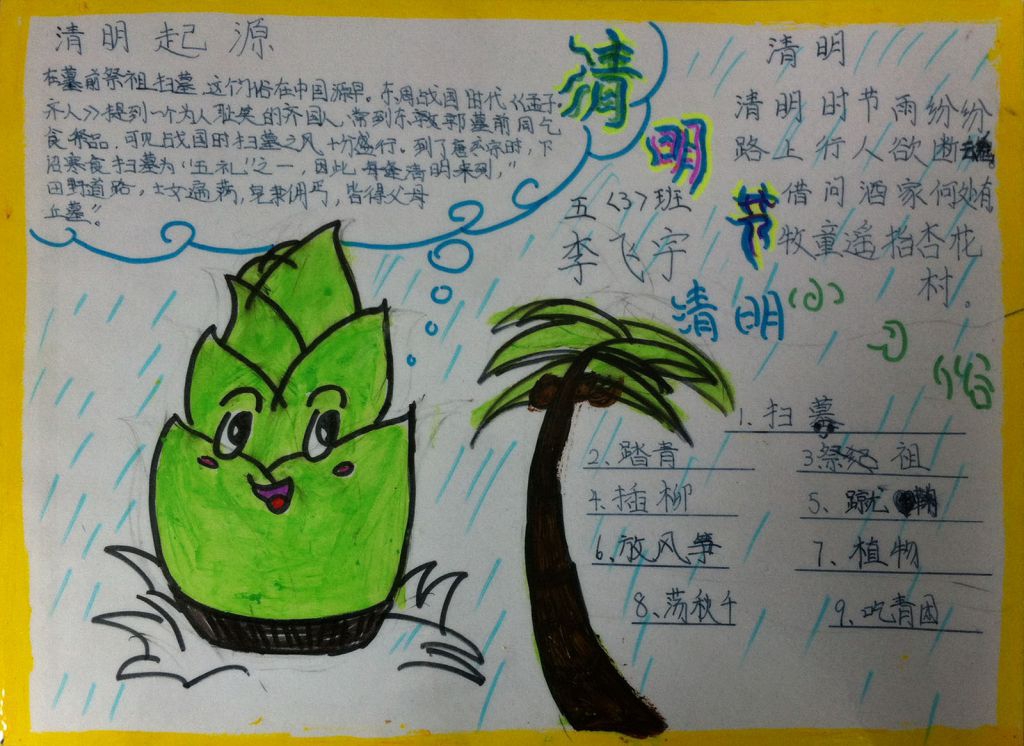 清明起源
在墓前祭祖扫墓,这个习俗在中国源早。东周战国时代《孟子·
齐人》提到一个为人耻笑的齐国人,常到东郭墓前同乞
食祭品,可见战国时扫墓之风十分盛行。到了唐玄宗时,下
沼寒食扫墓为“五礼”之一,因此每逢清明来到,”
田野道路,士女遍满,皂隶佣丐,皆得父母
丘墓”。
清
明
节
五〈3〉班
李飞宇
清明
清明时节雨纷纷
路上行人欲断
借问酒家何处有
牧童遥指杏花
村。
清明小
习
俗
1.扫墓
2、踏青
3.祭祖
4.插柳
5、蹴鞠
6、放风筝
7、植物
8、荡秋千
9、吃青团